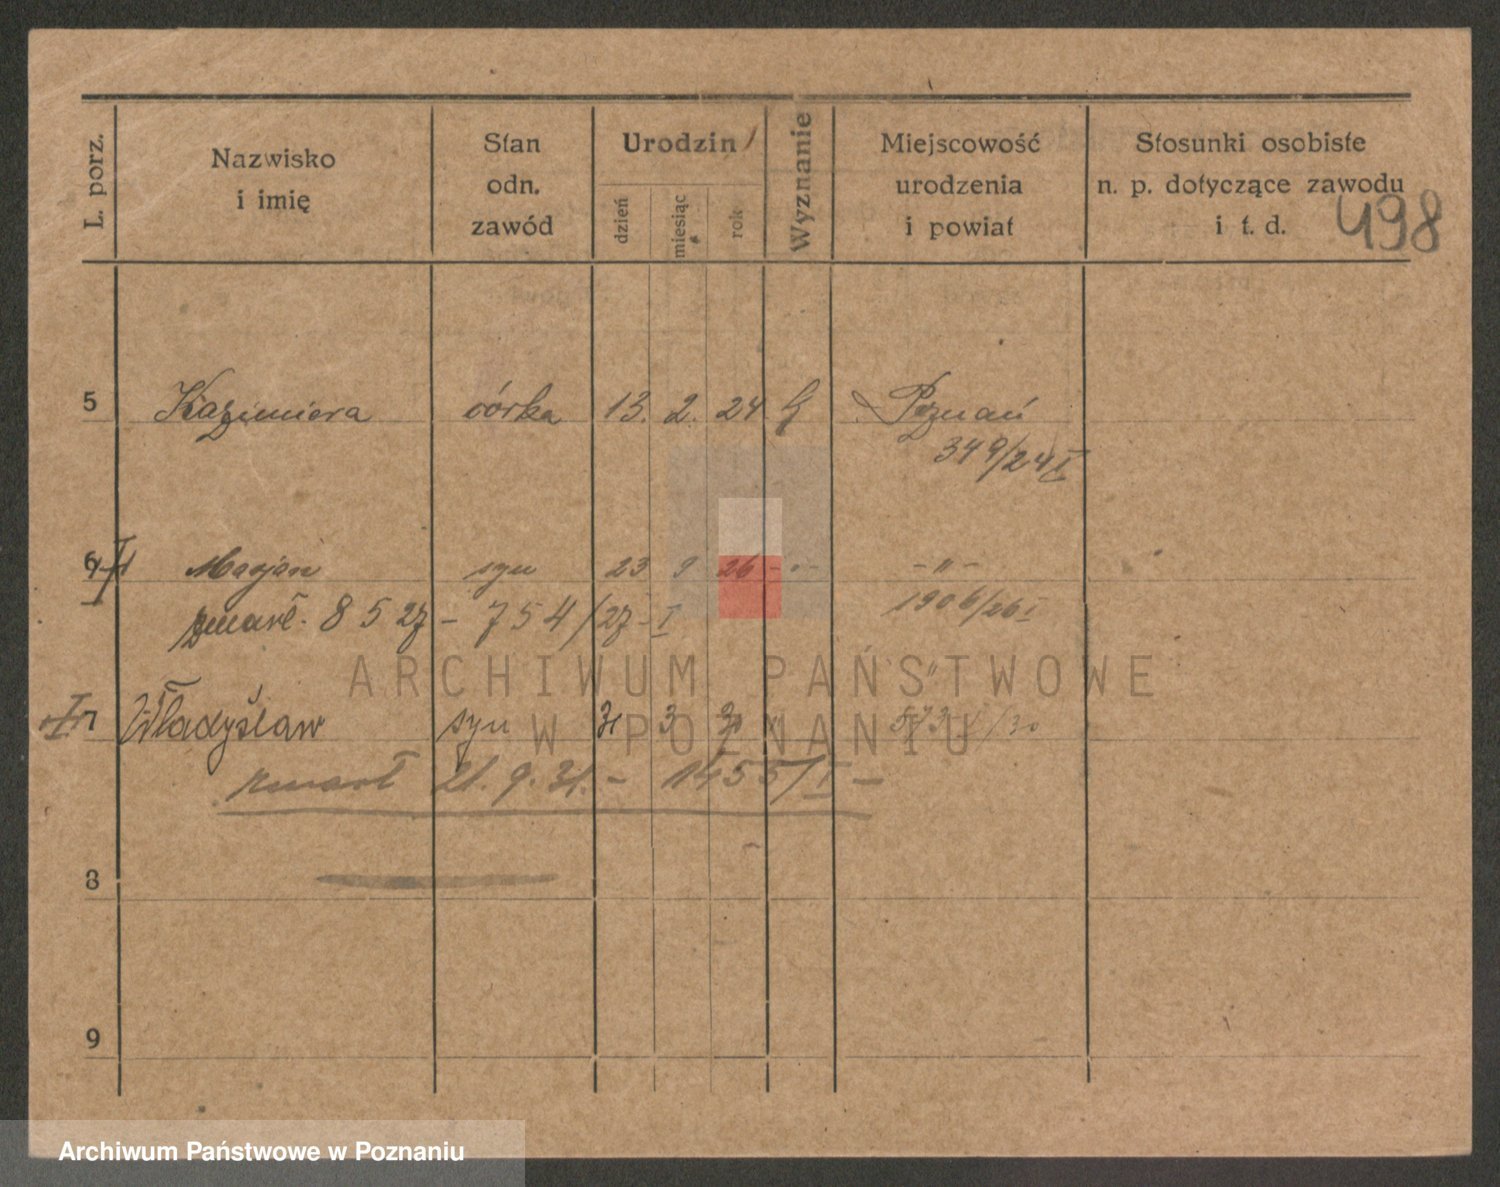 L. porz. Nazwisko i imię Stan odn. zawód Urodzin dzień miesiąc rok Wyznanie Miejscowość urodzenia i powiat Stosunki osobiste n. p. dotyczące zawodu i t. d.
498
5 Kazimiera córka 13. 2. 24 Poznań
349/24 I
6 Marjan syn 23 9 26 -"- -"-
zmarł. 8 5 27 - 754/27 - I
1906/26 I
ARCHIWUM PAŃSTWOWE
7 Władysław syn 31 3 "
W POZNANIU
zmarł 21. 9. 31. - 1455/I -
8
9
Archiwum Państwowe w Poznaniu